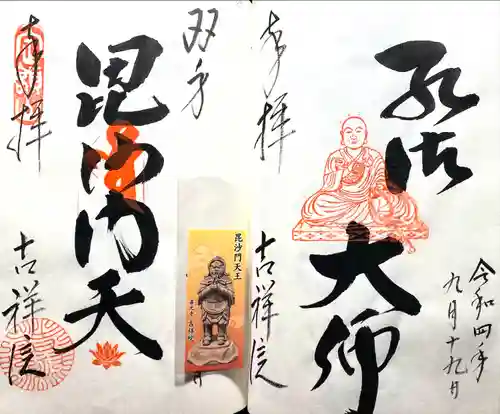 令和四年
九月十九日
弘法大師
奉拝
吉祥院
毘沙門天王
日
毘沙門天
奉拝
吉祥院